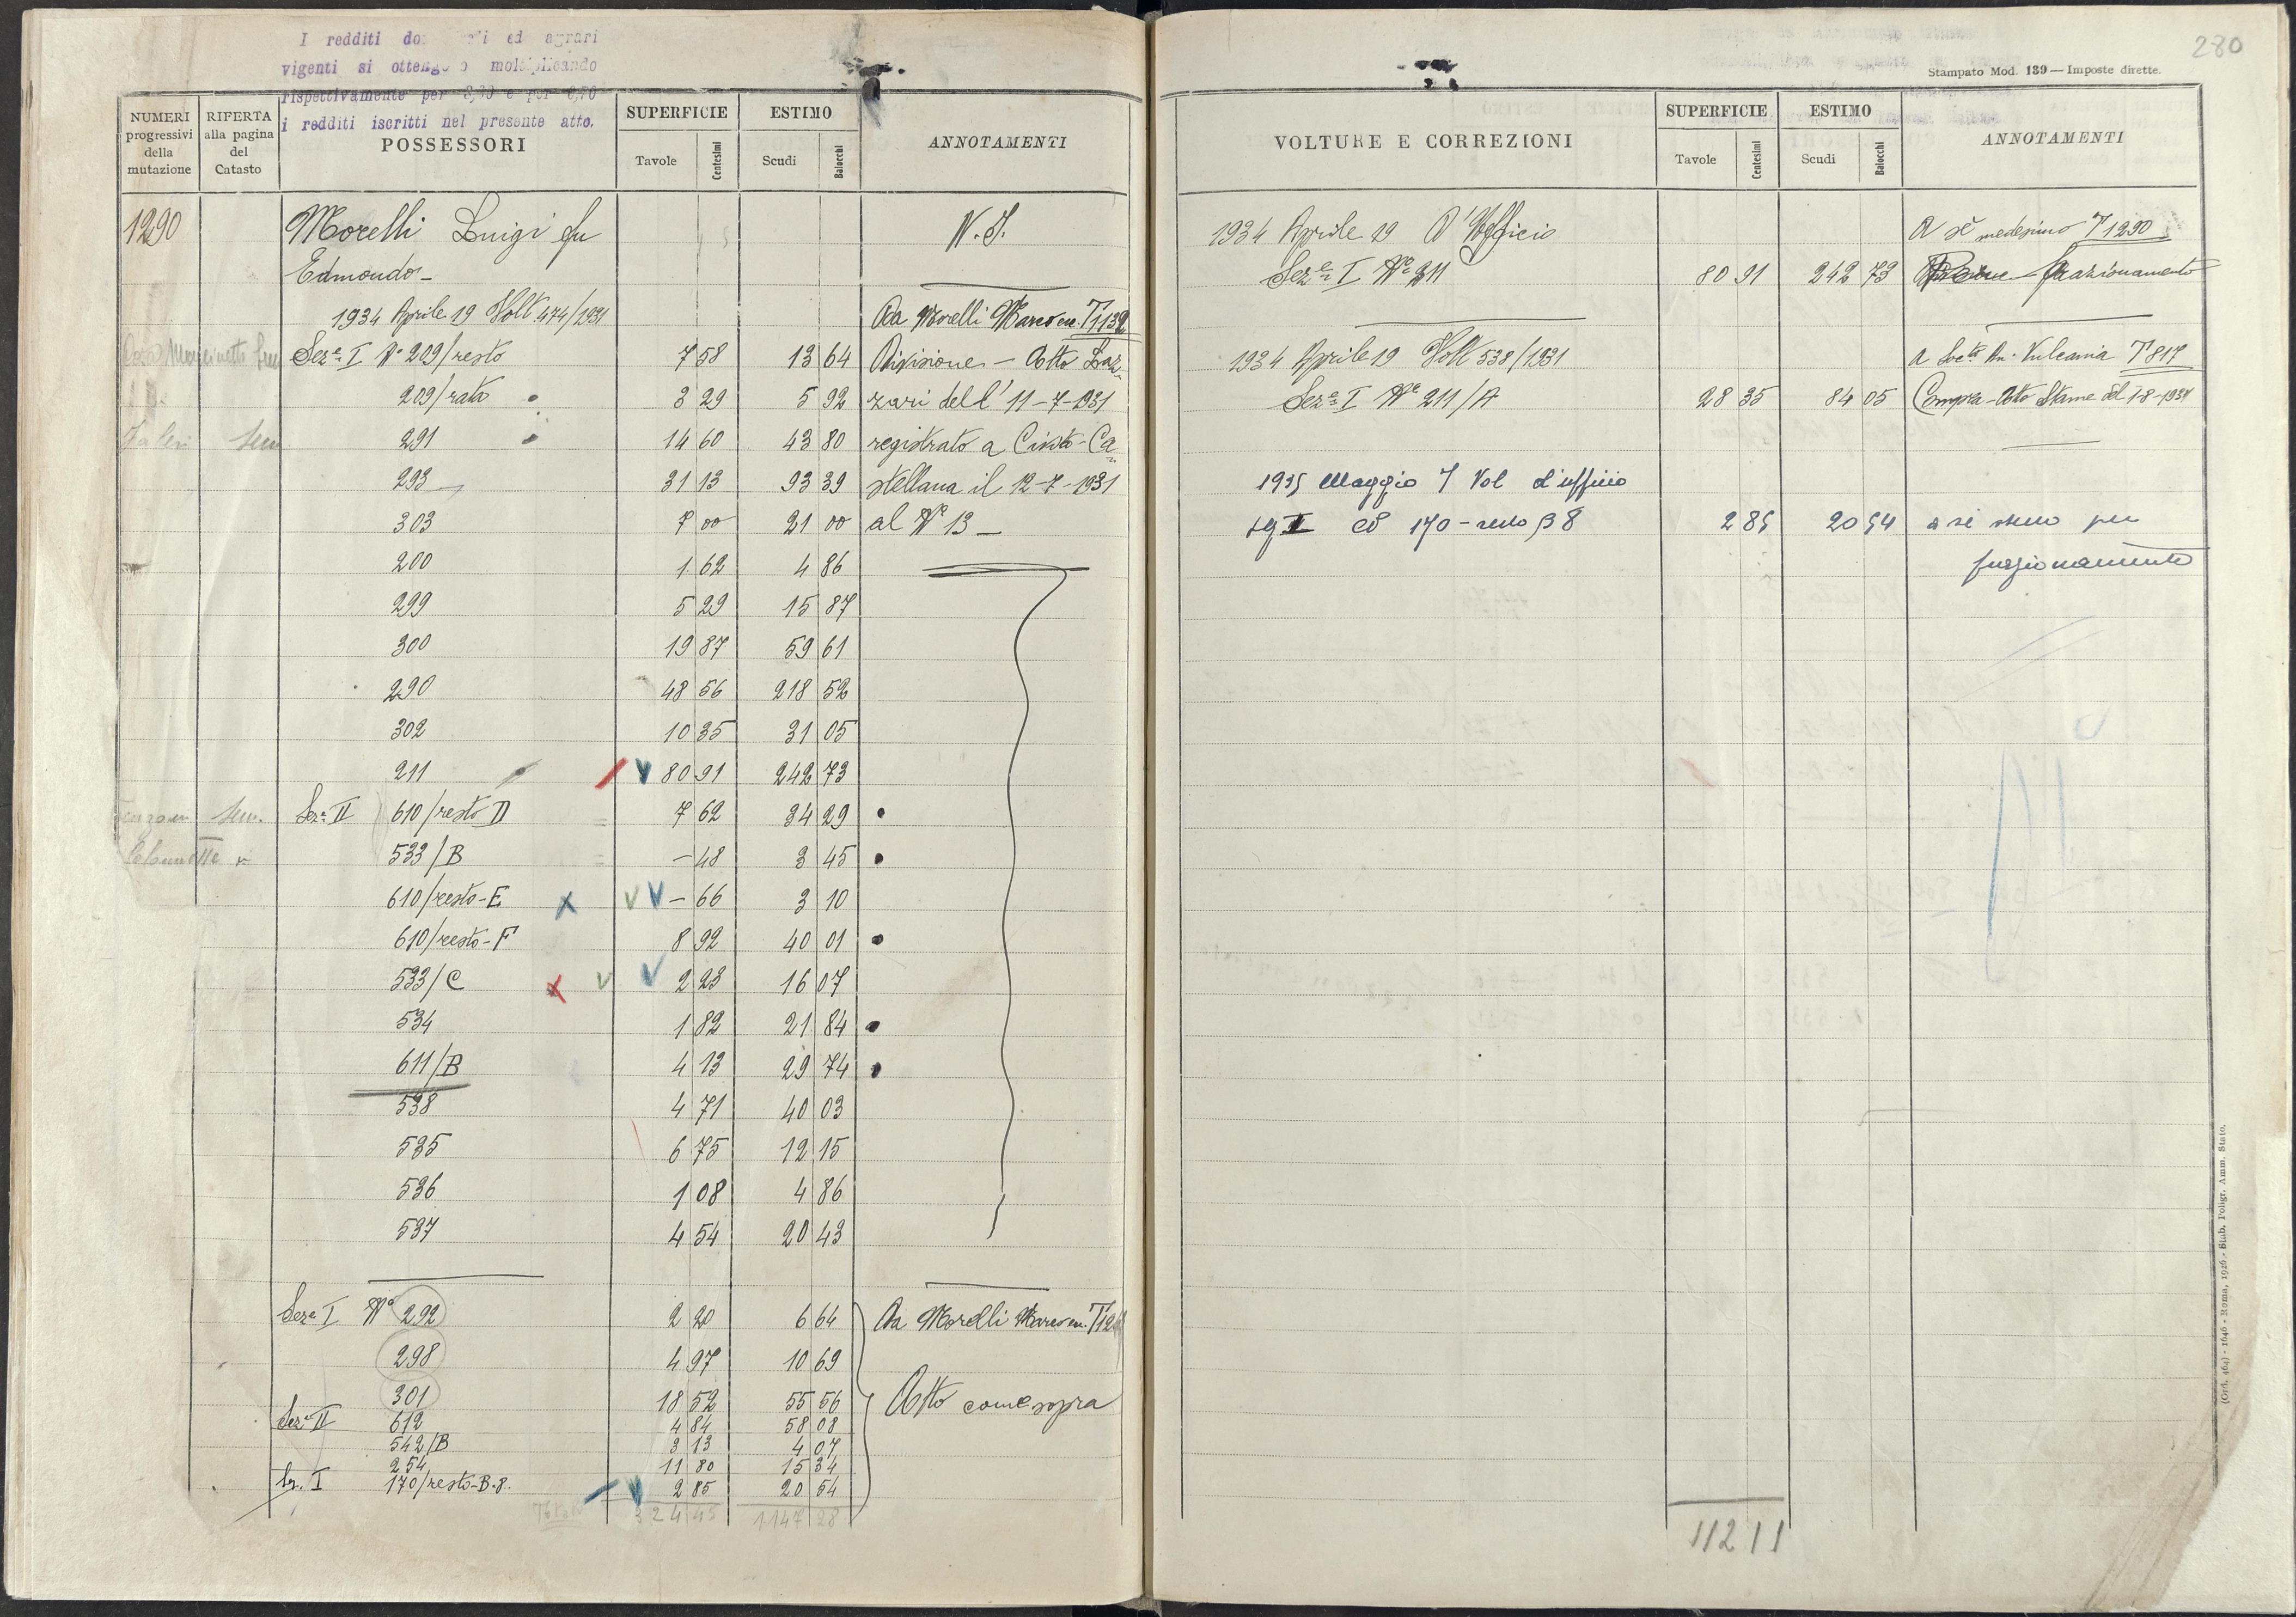 I redditi ed agrari
vigenti si moltiplicando
rispettivamente per e per
i redditi iscritti nel presente atto.
NUMERI progressivi della mutazione
RIFERTA alla pagina del Catasto
POSSESSORI
SUPERFICIE
Tavole Centesimi
ESTIMO
Scudi Baiocchi
ANNOTAMENTI
1290 Morelli Luigi fu N. I.
Edmondo
1934 Aprile 19 Volt 474/1931 Da Morelli Marco T 1132
Seze I No 209/resto 7 58 13 64 Divisione - Atto Laz-
209/rata 3 29 5 92 zari dell' 11-7-1931
291 14 60 43 80 registrato a Civita-Ca
293 31 13 93 39 stellana il 12-7-1931
303 7 00 21 00 al No 13
200 1 62 4 86
299 5 29 15 87
300 19 87 59 61
290 48 56 218 52
302 10 35 31 05
211 80 91 242 73
Seze II 610/resto D 7 62 34 29
533/B - 48 3 45
610/resto-E - 66 3 10
610/resto-F 8 92 40 01
533/C 2 23 16 07
534 1 82 21 84
611/B 4 13 29 74
538 4 71 40 03
535 6 75 12 15
536 1 08 4 86
537 4 54 20 43
Seze I No 292 2 20 6 64 Da Morelli Marco
298 4 97 10 69
301 18 52 55 56 Atto come sopra
Seze II 612 4 84 58 08
542/B 3 13 4 07
254 11 80 15 34
Sez. I 170/resto-B.8. 2 85 20 54
324 45 1147 28
280
Stampato Mod. 139 — Imposte dirette.
VOLTURE E CORREZIONI
SUPERFICIE
Tavole Centesimi
ESTIMO
Scudi Baiocchi
ANNOTAMENTI
1934 Aprile 19 D'Ufficio A sè medesimo T 1290
Seze I No 211 80 91 242 73 frazionamento
1934 Aprile 19 Volt 538/1931 a Socta An. Vulcania T 817
Seze I No 211/A 28 35 84 05 Compra-Atto Stame del
1935 Maggio 7 Vol d'ufficio
170 - resto B 8 2 85 20 54 a sè stesso per
frazionamento
11211
(Ord. 464) - 1646 - Roma, 1926 - Stab. Poligr. Amm. Stato.